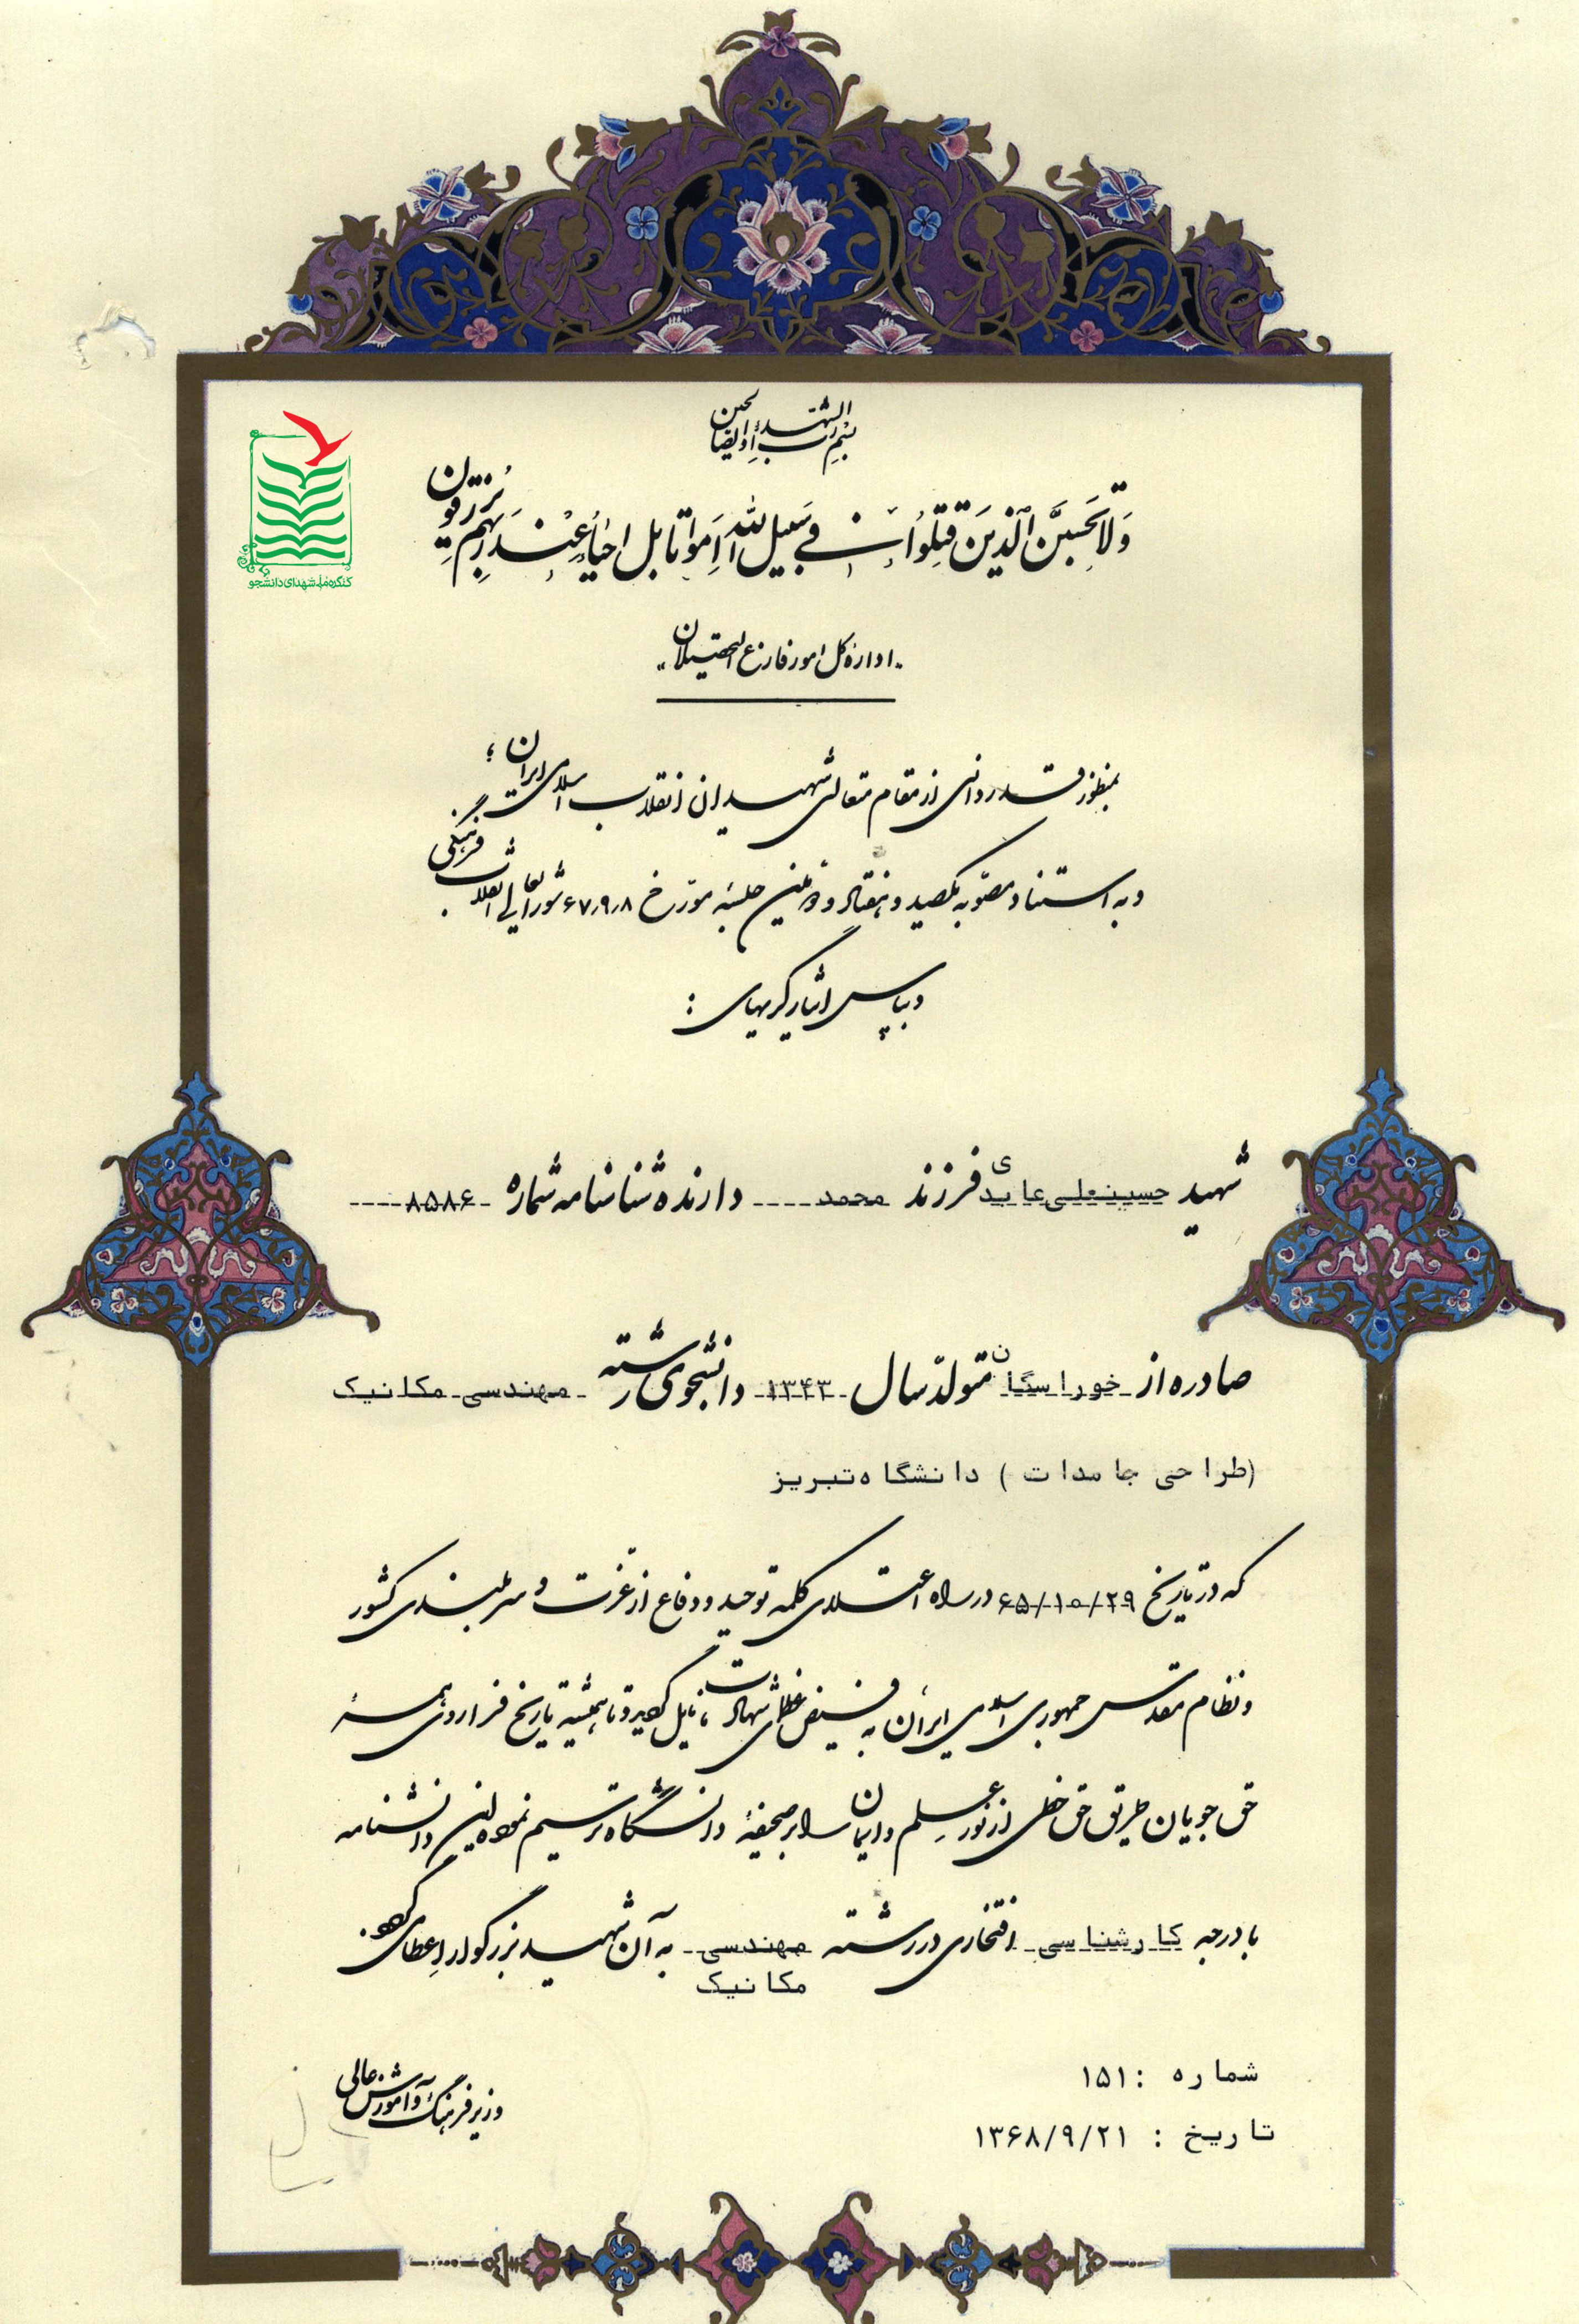 بسم رب الشهداء و الصالحین
وَلا تَحسَبَنَّ الَّذینَ قُتِلُوا فی سَبیلِ اللهِ اَمواتا بَل اَحیاءٌ عِندَ رَبِّهِم یُرزَقون
کنگره ملی شهدای دانشجو
"اداره کل امور فارغ التحصیلان"
بمنظور قدردانی از مقام متعالی شهیدان انقلاب اسلامی ایران ؛
و به استناد مصوبه یکصد و هفتاد و دومین جلسه مورخ ۶۷٫۹٫۸ شورایعالی انقلاب فرهنگی
و بپاس ایثارگریهای :
شهید حسینعلی عابدی فرزند محمد دارنده شناسنامه شماره ۸۵۸۶
صادره از خوراسگان متولد سال ۱۳۴۳ دانشجوی رشته مهندسی مکانیک
(طراحی جامدات ) دانشگاه تبریز
که در تاریخ ۶۵/۱۰/۲۹ در راه اعتلای کلمه توحید و دفاع از عزت و سربلندی کشور
و نظام مقدس جمهوری اسلامی ایران به فیض عظمای شهادت نایل گردید و تا همیشه تاریخ فراروی همه
حق جویان طریق حق خطی از نور علم و ایمان را بر صحیفه دانشگاه ترسیم نمود این دانشنامه
با درجه کارشناسی افتخاری در رشته مهندسی مکانیک به آن شهید بزرگوار اعطا می گردد.
شماره : ۱۵۱
تاریخ : ۱۳۶۸/۹/۲۱
وزیر فرهنگ و آموزش عالی